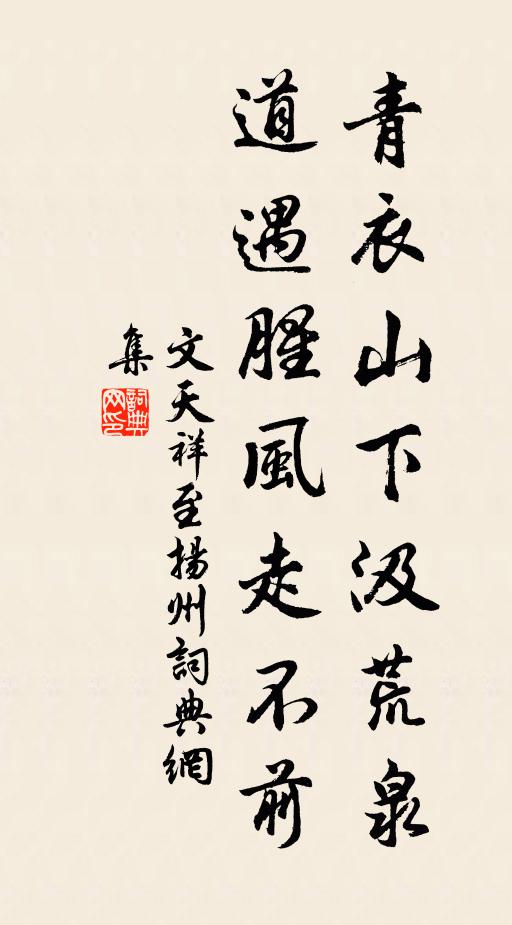 青衣山下汲荒泉
道遇腥風走不前
文天祥至揚州詞典網
集
詞典
网印